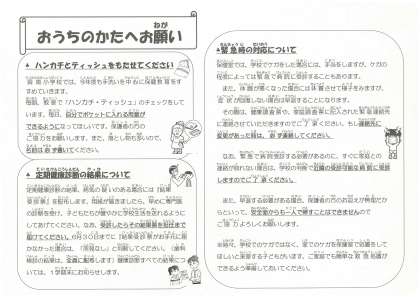 おうちのかたへお願い
ハンカチとティッシュをもたせてください
小学校では、今年度も手洗いを中心に保健教育をす
すめていきます。
毎朝、教室で「ハンカチ・ティッシュ」のチェックをして
います。毎日、自分でポケットに入れる習慣が
できるようになってほしいです。保護者の方の
ご協力をお願いします。また、落とし物も多いので、
名前は必ず書いてください。
定期健康診断の結果について
定期健康診断の結果、病気の疑いのある場合には「結果
を配布します。用紙が届きましたら、早めに専門医
の診察を受け、子どもたちが健やかに学校生活を送れるように
してあげてください。なお、受診したらその結果票を担任まで
届けてください。6月30日までに「結果のお知らせ」がお手元に届
かなかった場合は、「所見なし」と判断してください。（歯科
検診の結果は、全員に配布します）健康診断すべての結果に
ついては、1学期末にお知らせします。
緊急時の対応について
保健室では、学校でケガをした場合には、手当をしますが、ケガの
程度によっては緊急で病院を受診することもあります。
また、体調が悪くなった場合は休養させて様子をみますが、
回復しない場合は早退することになります。
その際は、健康調査票や、家庭調査票に記入された緊急連絡先
に連絡させていただきますのでご了承ください。もし連絡先に
変更があった時は、必ず連絡してください。
なお、緊急で病院を受診する必要があるのに、すぐに家庭との
連絡が取れない場合は、学校の判断で近隣の受診可能な病院に受診
しますのでご了承ください。
また、早退する必要がある場合、保護者の方のお迎えが無理だか
らといって、安全面からも一人で帰すことはできませんので
ご協力よろしくお願いします。
※時々、学校でのケガではなく、家でのケガを保健室で処置をして
ほしいと来室する子どもがいます。ご家庭でも簡単な救急処置が
できるよう準備しておいてください。